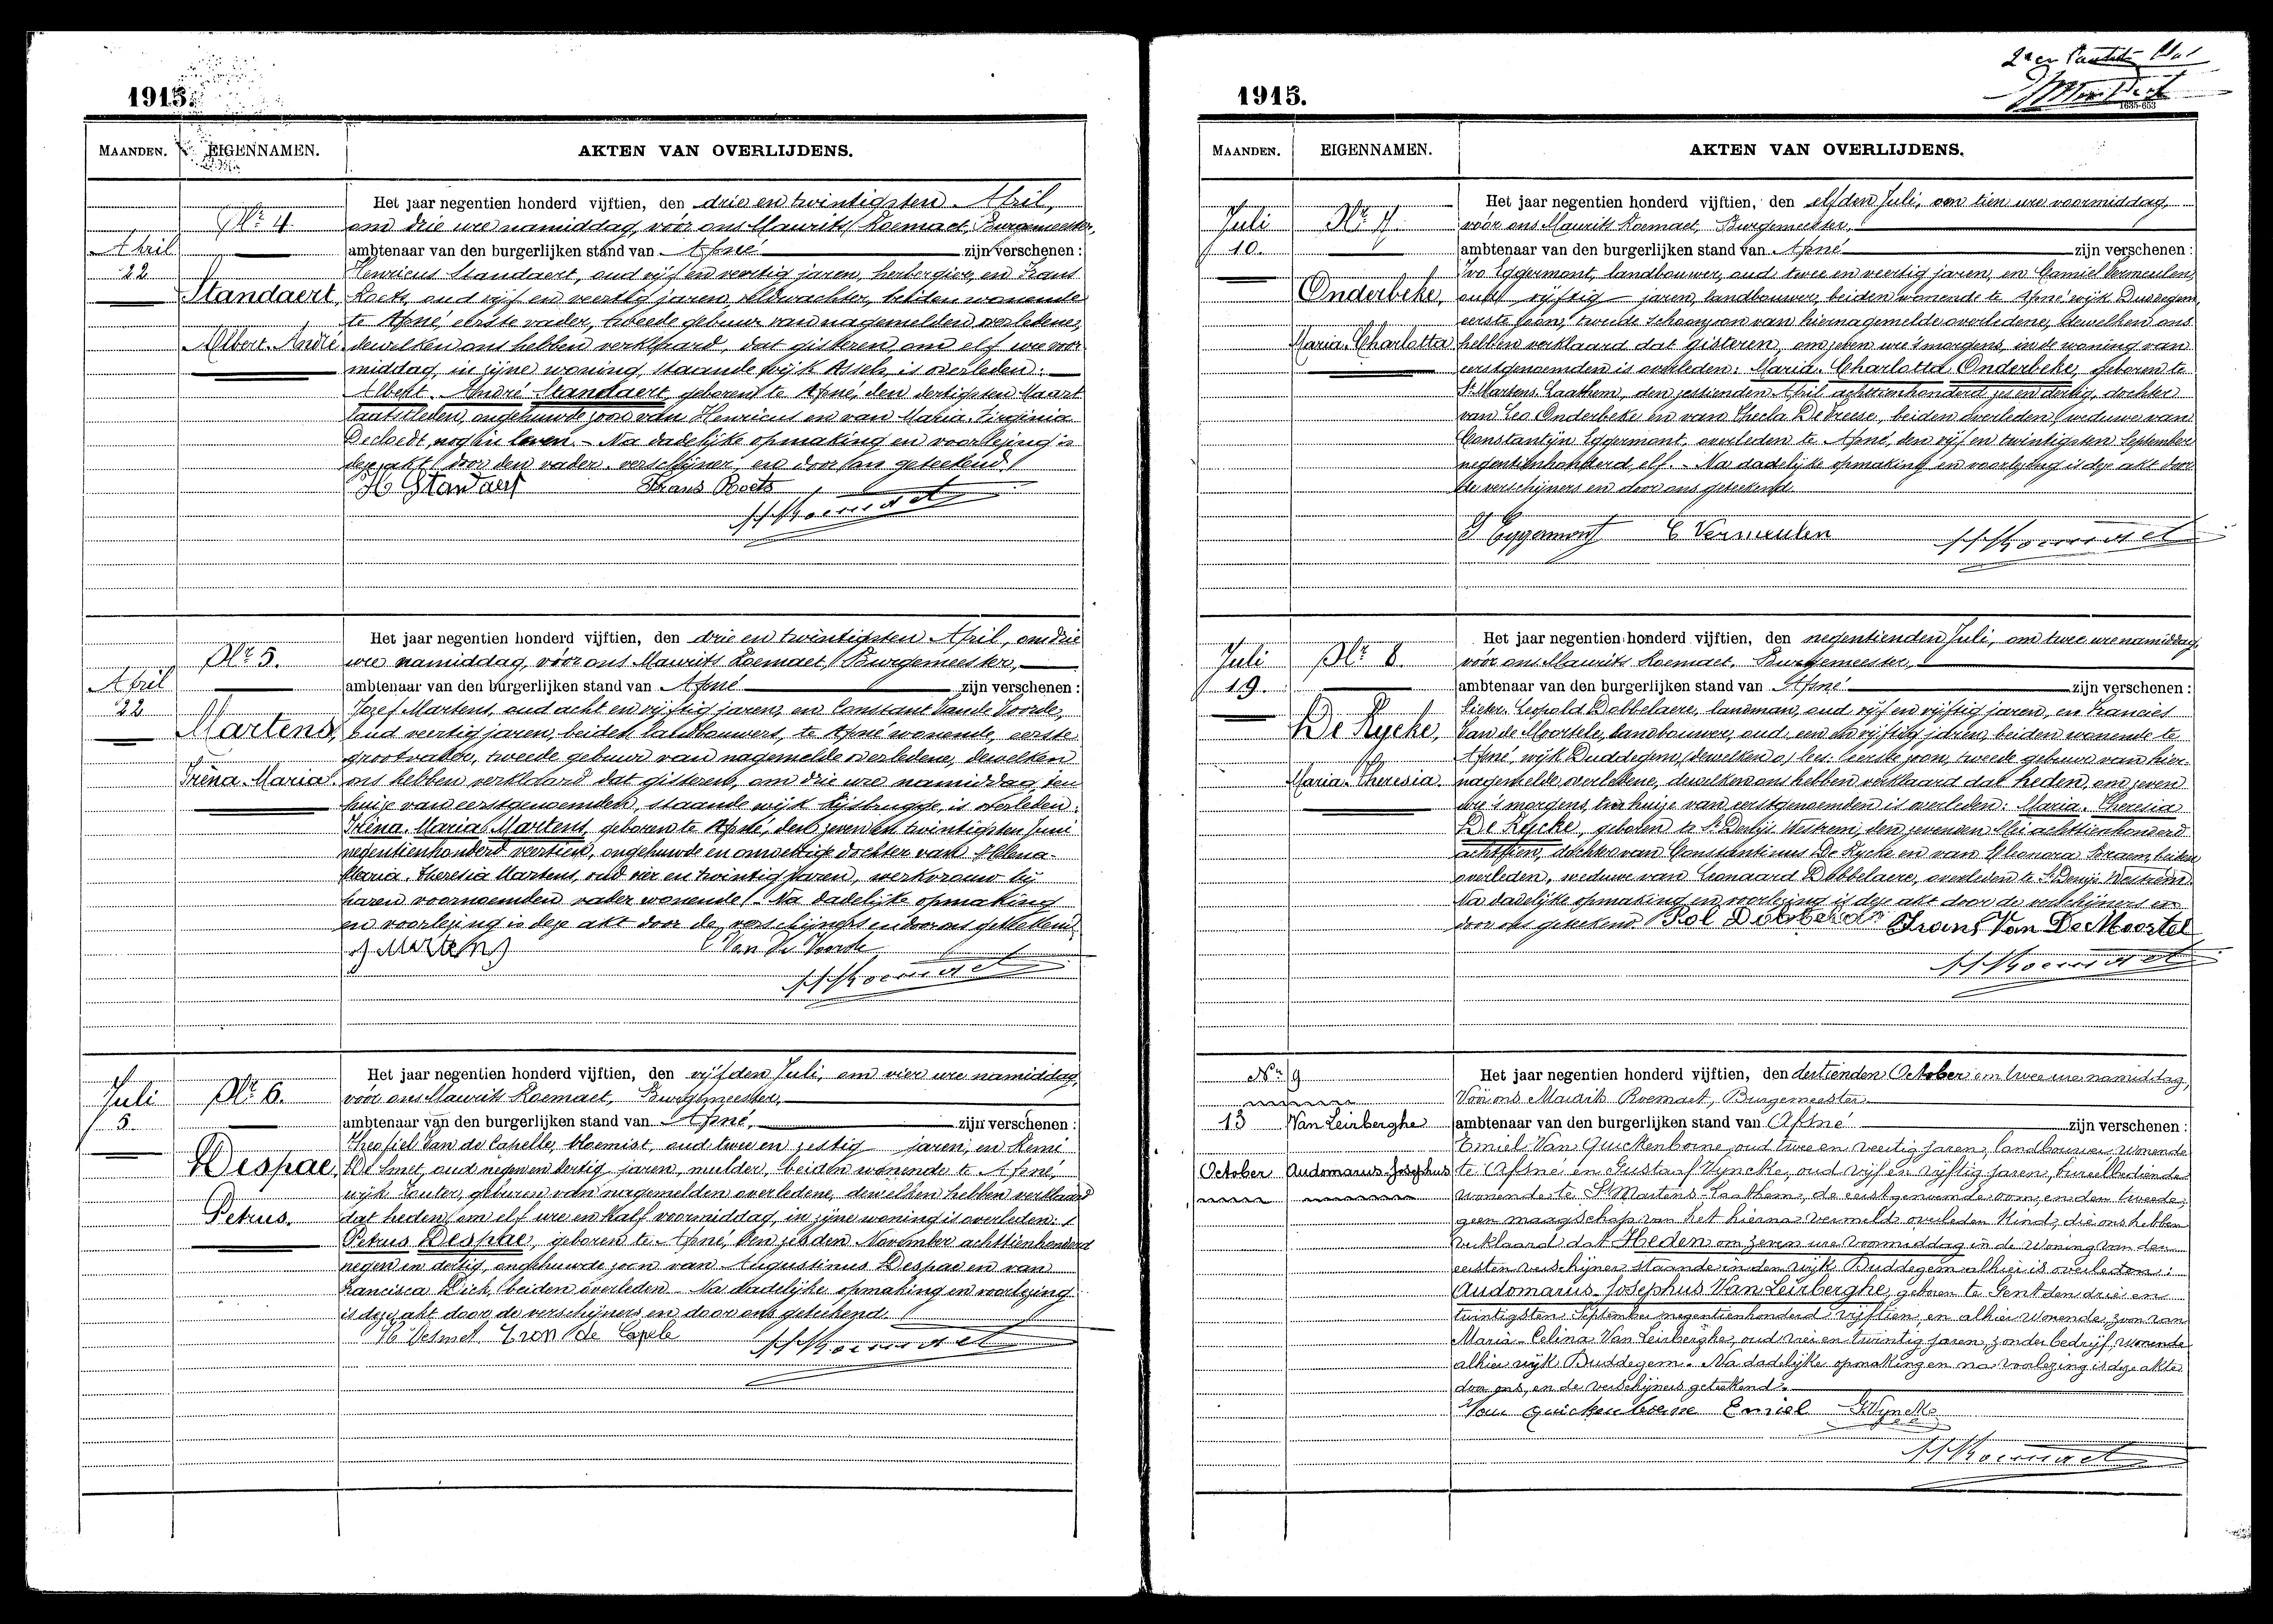 1915.
MAANDEN. EIGENNAMEN. AKTEN VAN OVERLIJDENS.
Nr 4.
April
22
Standaert,
Albert. André.
Het jaar negentien honderd vijftien, den drie en twintigsten April,
om drie ure namiddag, vóór ons Maurits Roemaet, Burgemeester,
ambtenaar van den burgerlijken stand van Afsné zijn verschenen:
Henricus Standaert, oud vijf en veertig jaren, herbergier, en Frans
Roets, oud vijf en veertig jaren, veldwachter, beiden wonende
te Afsné, eerste vader, tweede gebuur van nagemelden overledene,
dewelken ons hebben verklaard, dat gisteren, om elf ure voor
middag, in zijne woning, staande wijk Assels, is overleden:
Albert. André Standaert, geboren te Afsné, den dertigsten Maart
laatstleden, ongehuwde zoon van Henricus en van Maria. Virginia
Decloedt, nog in leven. - Na dadelijke opmaking en voorlezing is
deze akt door den vader. verschijner, en door ons geteekend.
H Standaert Frans Roets
MRoemaet
Nr 5.
April
22
Martens,
Iréna. Maria.
Het jaar negentien honderd vijftien, den drie en twintigsten April, om drie
ure namiddag, vóór ons Maurits Roemaet, Burgemeester,
ambtenaar van den burgerlijken stand van Afsné zijn verschenen:
Jozef Martens, oud acht en vijftig jaren, en Constant Vande Voorde,
oud veertig jaren, beiden landbouwers, te Afsné wonende, eerste
grootvader, tweede gebuur van nagemelde overledene, dewelken
ons hebben verklaard dat gisteren, om drie ure namiddag, ten
huize van eerstgenoemden, staande wijk, is overleden:
Iréna. Maria Martens, geboren te Afsné, den zeven en twintigsten Juni
negentienhonderd veertien, ongehuwde en onwettige dochter van Helena-
Maria. Theresia Martens, oud vier en twintig jaren, werkvrouw bij
haren voornoemden vader wonende. - Na dadelijke opmaking
en voorlezing is deze akt door de verschijners en door ons geteekend.
J Martens C Van De Voorde
MRoemaet
Nr 6.
Juli
5.
Despae,
Petrus.
Het jaar negentien honderd vijftien, den vijfden Juli, om vier ure namiddag,
vóór ons Maurits Roemaet, Burgemeester,
ambtenaar van den burgerlijken stand van Afsné, zijn verschenen:
Theofiel Van de Capelle, bloemist, oud twee en zestig jaren, en Remi
De Smet, oud negen en dertig jaren, mulder, beiden wonende te Afsné,
wijk Lauter, geburen van nagemelden overledene, dewelken hebben verklaard
dat heden, om elf ure en half voormiddag, in zijne woning is overleden:
Petrus Despae, geboren te Afsné, den zesden November achttienhonderd
negen en dertig, ongehuwde zoon van Augustinus Despae en van
Francisca Dick, beiden overleden. Na dadelijke opmaking en voorlezing
is deze akt door de verschijners en door ons geteekend.
Desmet de Capele
MRoemaet
1915.
1635-653
MAANDEN. EIGENNAMEN. AKTEN VAN OVERLIJDENS.
Juli
10.
Nr 7.
Onderbeke,
Maria. Charlotta
Het jaar negentien honderd vijftien, den elfden Juli, om tien ure voormiddag,
vóór ons Maurits Roemaet, Burgemeester,
ambtenaar van den burgerlijken stand van Afsné zijn verschenen:
Ivo Eggermont, landbouwer, oud twee en veertig jaren, en Camiel Vermeulen,
oud vijftig jaren, landbouwer, beiden wonende te Afsné wijk Duddegem,
eerste zoon, tweede schoonzoon van hiernagemelde overledene, dewelken ons
hebben verklaard dat gisteren, om zeven ure 's morgens, in de woning van
eerstgenoemden is overleden: Maria. Charlotta Onderbeke, geboren te
St Martens. Laathem, den zestienden April achttienhonderd zes en dertig, dochter
van Leo Onderbeke en van Thecla De Vreese, beiden overleden, weduwe van
Constantijn Eggermont, overleden te Afsné, den vijf en twintigsten September
negentienhonderd elf. - Na dadelijke opmaking en voorlezing is deze akt door
de verschijners en door ons geteekend.
I Eggermont C Vermeulen MRoemaet
Juli
19.
Nr 8.
De Rycke,
Maria. Theresia.
Het jaar negentien honderd vijftien, den negentienden Juli, om twee ure namiddag,
vóór ons Maurits Roemaet, Burgemeester,
ambtenaar van den burgerlijken stand van Afsné zijn verschenen:
Pieter. Leopold Dobbelaere, landman, oud vijf en vijftig jaren, en Francies
Van de Moortele, landbouwer, oud een en vijftig jaren, beiden wonende te
Afsné, wijk Duddegem, (dewelken o) lees: eerste zoon, tweede gebuur van hier-
nagemelde overledene, dewelken ons hebben verklaard dat heden, om zeven
ure 's morgens, ten huize van eerstgenoemden is overleden: Maria. Theresia
De Rycke, geboren te St Denijs Westrem, den zevenden Mei achttienhonderd
achttien, dochter van Constantinus De Rycke en van Eleonora Braem, beiden
overleden, weduwe van Leonaard Dobbelaere, overleden te St Denijs Westrem.
Na dadelijke opmaking en voorlezing is deze akt door de verschijners en
door ons geteekend. Pol Dobbelaere Frans Van De Moortel
MRoemaet
Nr 9
13
October
Van Leirberghe
Audomarus. Josephus
Het jaar negentien honderd vijftien, den dertienden October om twee ure namiddag,
Vóór ons Maurits Roemaet, Burgemeester
ambtenaar van den burgerlijken stand van Afsné zijn verschenen:
Emiel Van Quickenborne, oud twee en veertig jaren, landbouwer wonende
te Afsné en Gustaaf Wyncke, oud vijf en vijftig jaren, bureelbediende
wonende te St Martens-Laathem, de eerstgenoemde oom, en den tweede,
geen maagschap van het hierna vermeld overleden kind, die ons hebben
verklaard dat Heden om zeven ure voormiddag in de woning van den
eersten verschijner staande in den wijk Duddegem alhier is overleden:
Audomarus. Josephus Van Leirberghe, geboren te Gent den drie en
twintigsten September negentienhonderd vijftien, en alhier wonende, zoon van
Maria-Celina Van Leirberghe, oud drie en twintig jaren, zonder bedrijf, wonende
alhier wijk Duddegem. Na dadelijke opmaking en na voorlezing is deze akte
door ons, en de verschijners geteekend.
Van Quickenborne Emiel G. Wyncke
MRoemaet